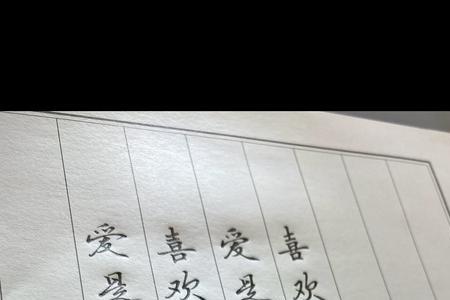 喜欢
爱是
喜欢
爱是